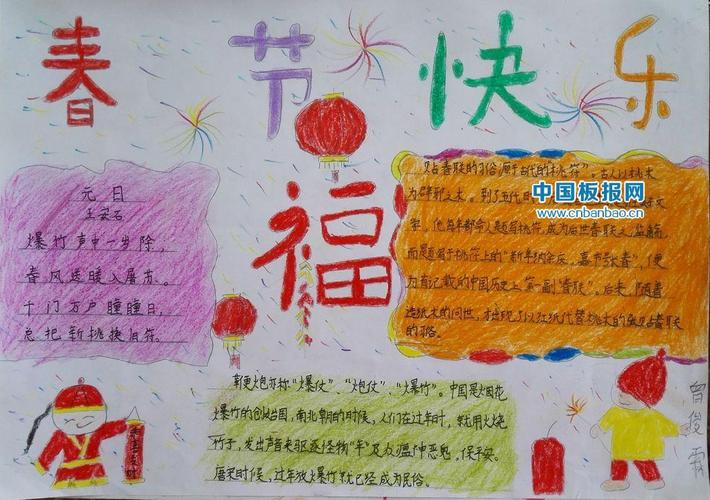 春节快乐
福
元日
王安石
爆竹声中一岁除，
春风送暖入屠苏。
千门万户瞳瞳日，
总把新桃换旧符。
贴春联的习俗源于古代的"桃符"。古人以桃木
为辟邪之木。到了五代
中国板报网
www.cnbanbao.cn
他每年都命人题写桃符，成为后世春联之滥觞，
而题写于桃符上的"新年纳余庆，嘉节号长春"，便
为有记载的中国历史上第一副"春联"。后来，随着
造纸术的问世，才出现了以红纸代替桃木的张贴春联
的习俗。
鞭炮亦称"爆仗"、"炮仗"、"爆竹"。中国是烟花
爆竹的创始国，南北朝的时候，人们在过年时，就用火烧
竹子，发出声音来驱逐怪物"年"及瘟神恶鬼，保平安。
唐宋时候，过年放爆竹就已经成为民俗。
恭喜发财
曾俊